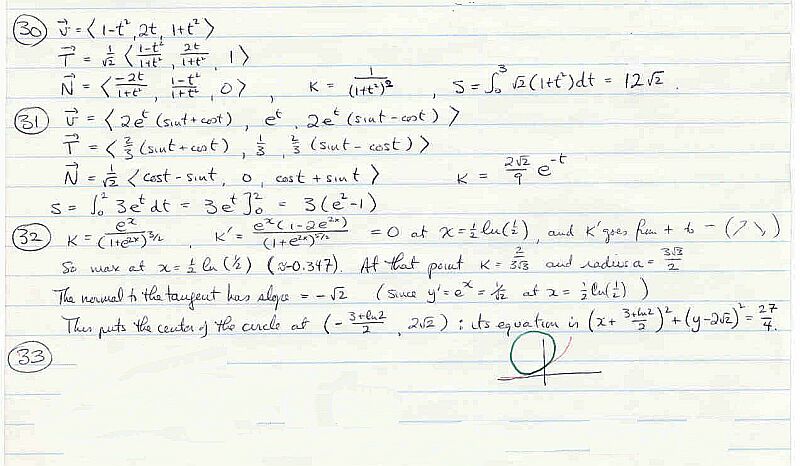 30 v⃗ = ⟨1-t², 2t, 1+t²⟩
T⃗ = 1/√2 ⟨(1-t²)/(1+t²), 2t/(1+t²), 1⟩
N⃗ = ⟨-2t/(1+t²), (1-t²)/(1+t²), 0⟩, K = 1/(1+t²)², S = ∫₀³ √2(1+t²)dt = 12√2.
31 v⃗ = ⟨2eᵗ(sint+cost), eᵗ, 2eᵗ(sint-cost)⟩
T⃗ = ⟨2/3 (sint+cost), 1/3, 2/3 (sint-cost)⟩
N⃗ = 1/√2 ⟨cost-sint, 0, cost+sint⟩ K = 2√2/9 e^-t
S = ∫₀² 3eᵗdt = 3eᵗ]₀² = 3(e²-1)
32 K = eˣ/(1+e²ˣ)^3/2, K' = eˣ(1-2e²ˣ)/(1+e²ˣ)^5/2 = 0 at x=½ln(½), and K' goes from + to - (↗↘)
So max at x=½ln(½) (≈-0.347). At that point K = 2/(3√3) and radius a = 3√3/2
The normal to the tangent has slope = -√2 (since y'=eˣ=1/√2 at x=½ln(½))
This puts the center of the circle at (-(3+ln2)/2, 2√2); its equation is (x+(3+ln2)/2)²+(y-2√2)²=27/4.
33